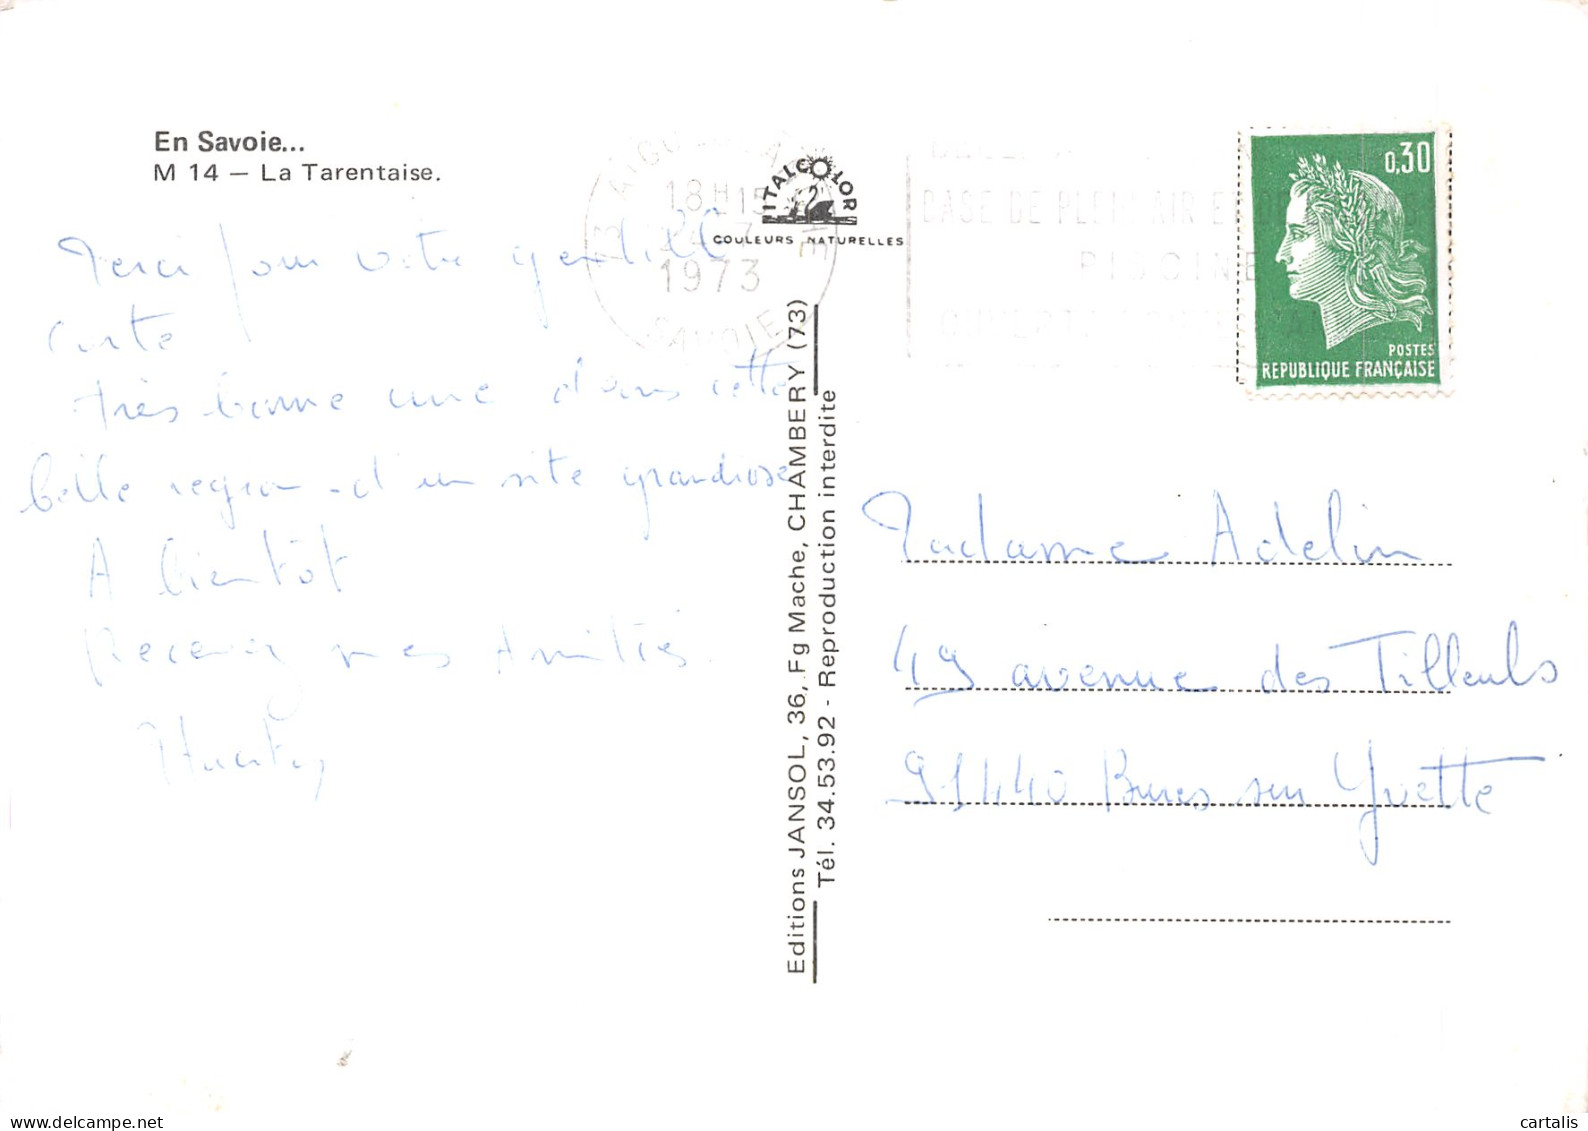 En Savoie...
M 14 – La Tarentaise.
Merci pour votre gentille
carte
très bonne cure dans cette
belle region d'un site grandiose
A bientôt
Recevez mes Amitiés.
ITALCOLOR
COULEURS NATURELLES
18H15
1973
SAVOIE
BASE DE PLEIN AIR
PISCINE
0,30
POSTES
REPUBLIQUE FRANÇAISE
Editions JANSOL, 36, Fg Mache, CHAMBERY (73)
Tél. 34.53.92 - Reproduction interdite
Madame Adelin
49 avenue des Tilleuls
91440 Bures sur Yvette
cartalis